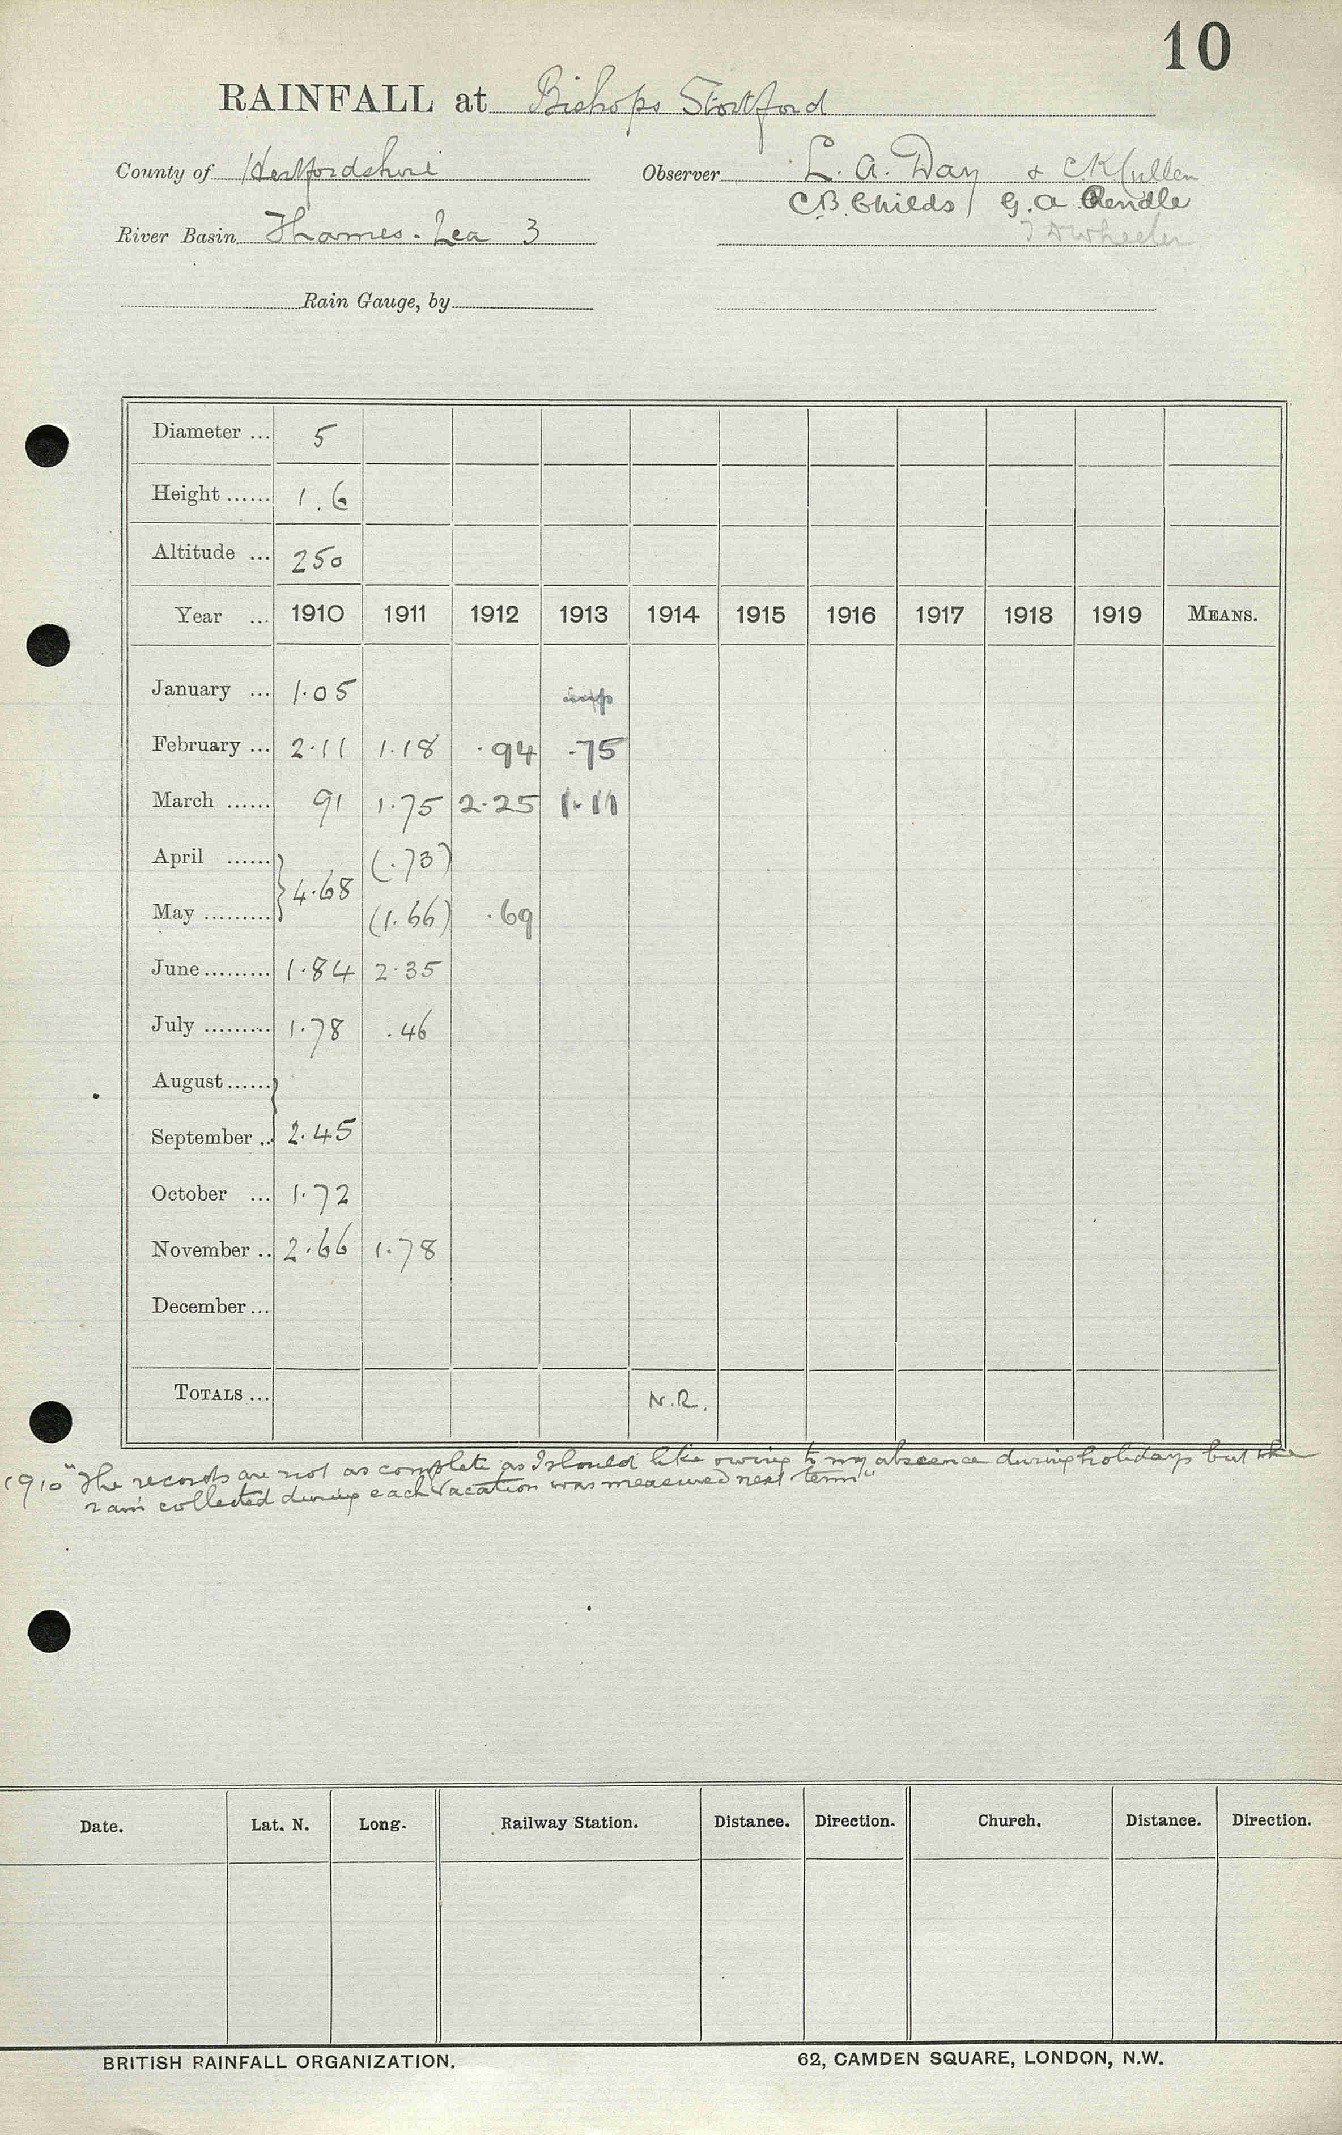 10
RAINFALL at Bishops Stortford
County of Hertfordshire Observer L. A. Day & C K Cullen
C B. Childs / G. A. Rendle
River Basin Thames - Lea 3 Wheeler
Rain Gauge, by
Diameter ... 5
Height ...... 1.6
Altitude ... 250
Year ... 1910 1911 1912 1913 1914 1915 1916 1917 1918 1919 MEANS.
January ... 1.05
February ... 2.11 1.18 .94 .75
March ...... 91 1.75 2.25 1.11
April ...... (.73)
} 4.68
May ......... (1.66) .69
June ......... 1.84 2.35
July ......... 1.78 .46
August ...... }
September .. 2.45
October ... 1.72
November .. 2.66 1.78
December ...
TOTALS ... N.R.
1910 "The records are not as complete as I should like owing to my absence during holidays but the
rain collected during each vacation was measured next term"
Date. Lat. N. Long. Railway Station. Distance. Direction. Church. Distance. Direction.
BRITISH RAINFALL ORGANIZATION. 62, CAMDEN SQUARE, LONDON, N.W.